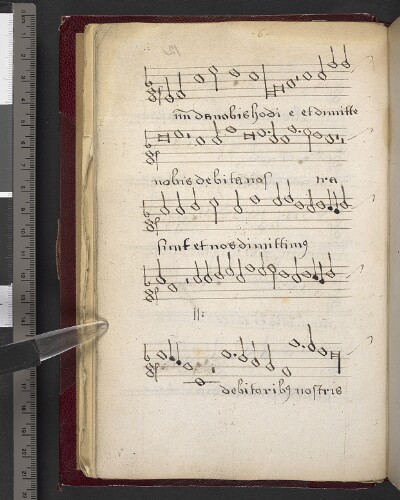 da nobis hodi e et dimitte
nobis debita nos tra
sicut et nos dimittimus
debitoribus nostris